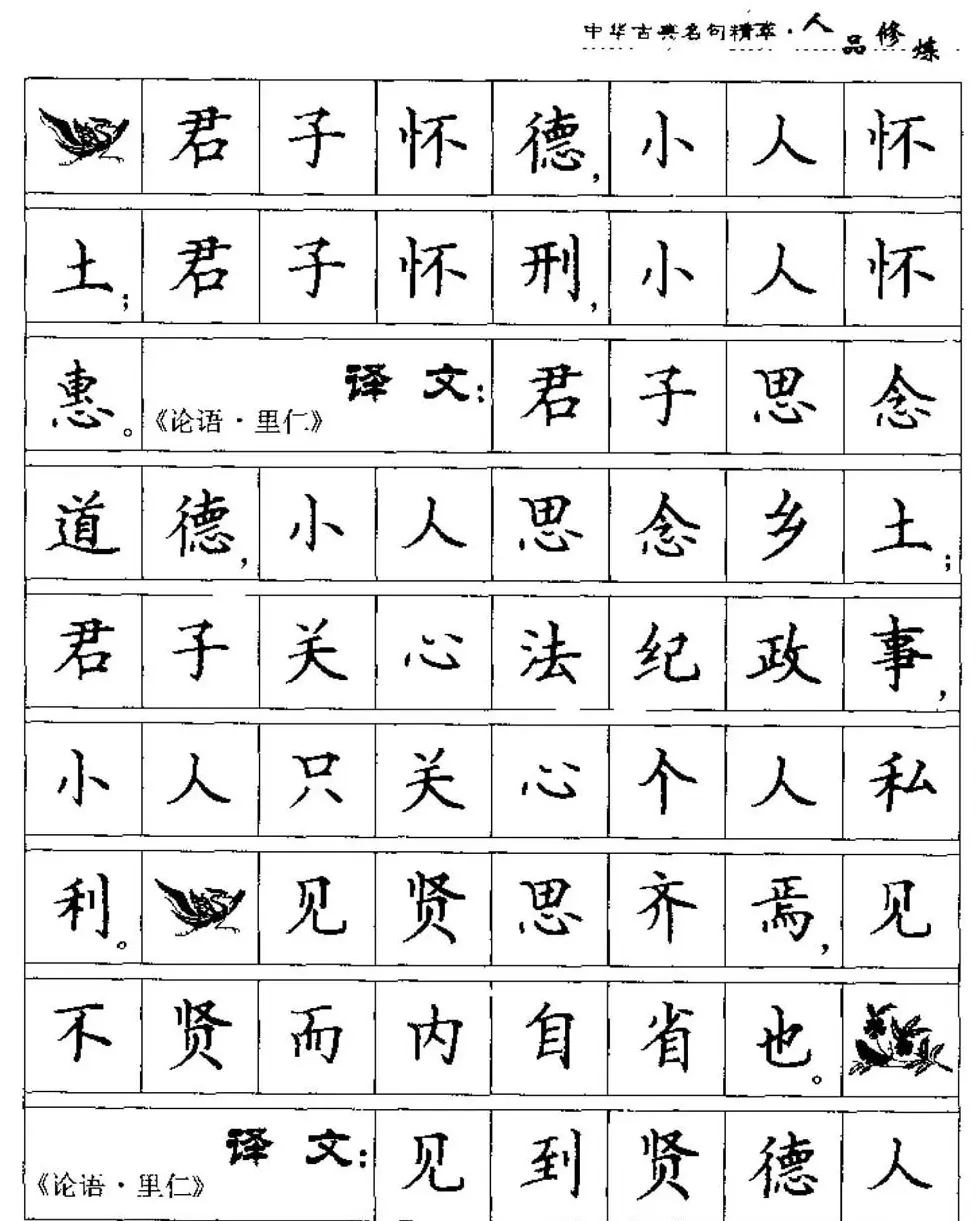 中华古典名句精萃·人品修炼
君子怀德，小人怀
土；君子怀刑，小人怀
惠。《论语·里仁》译文：君子思念
道德，小人思念乡土；
君子关心法纪政事，
小人只关心个人私
利。见贤思齐焉，见
不贤而内自省也。
《论语·里仁》译文：见到贤德人